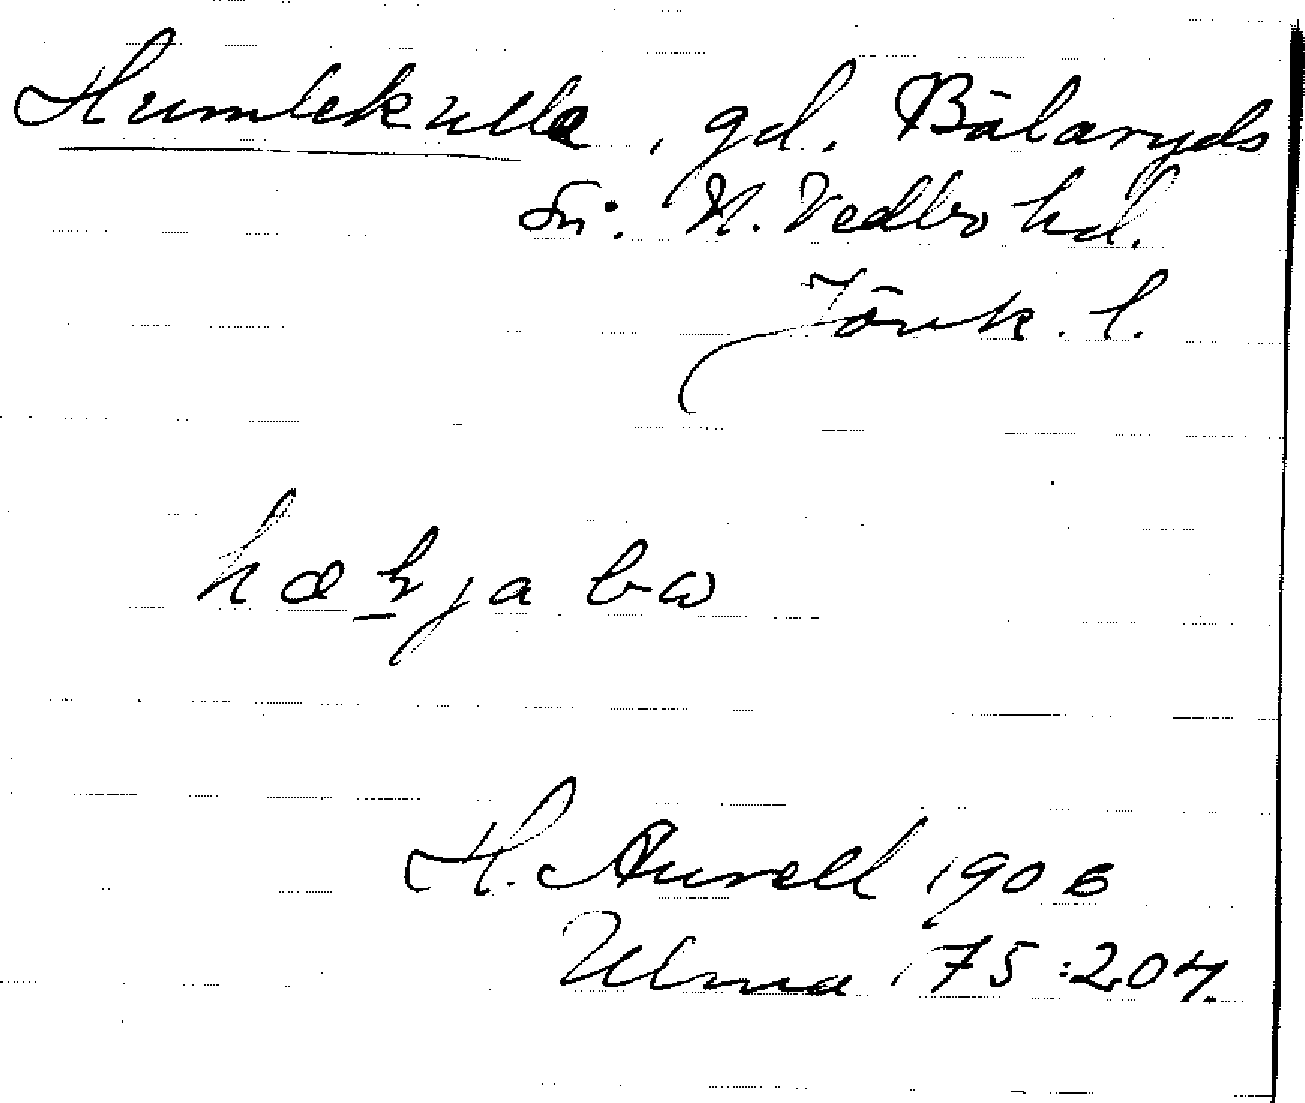 Humlekulla, gd. Bälaryds
Sn: N. Vedbo hd.
Jönk. l.
hækja bω
H. Aurell 1906
Ulma 75:204.